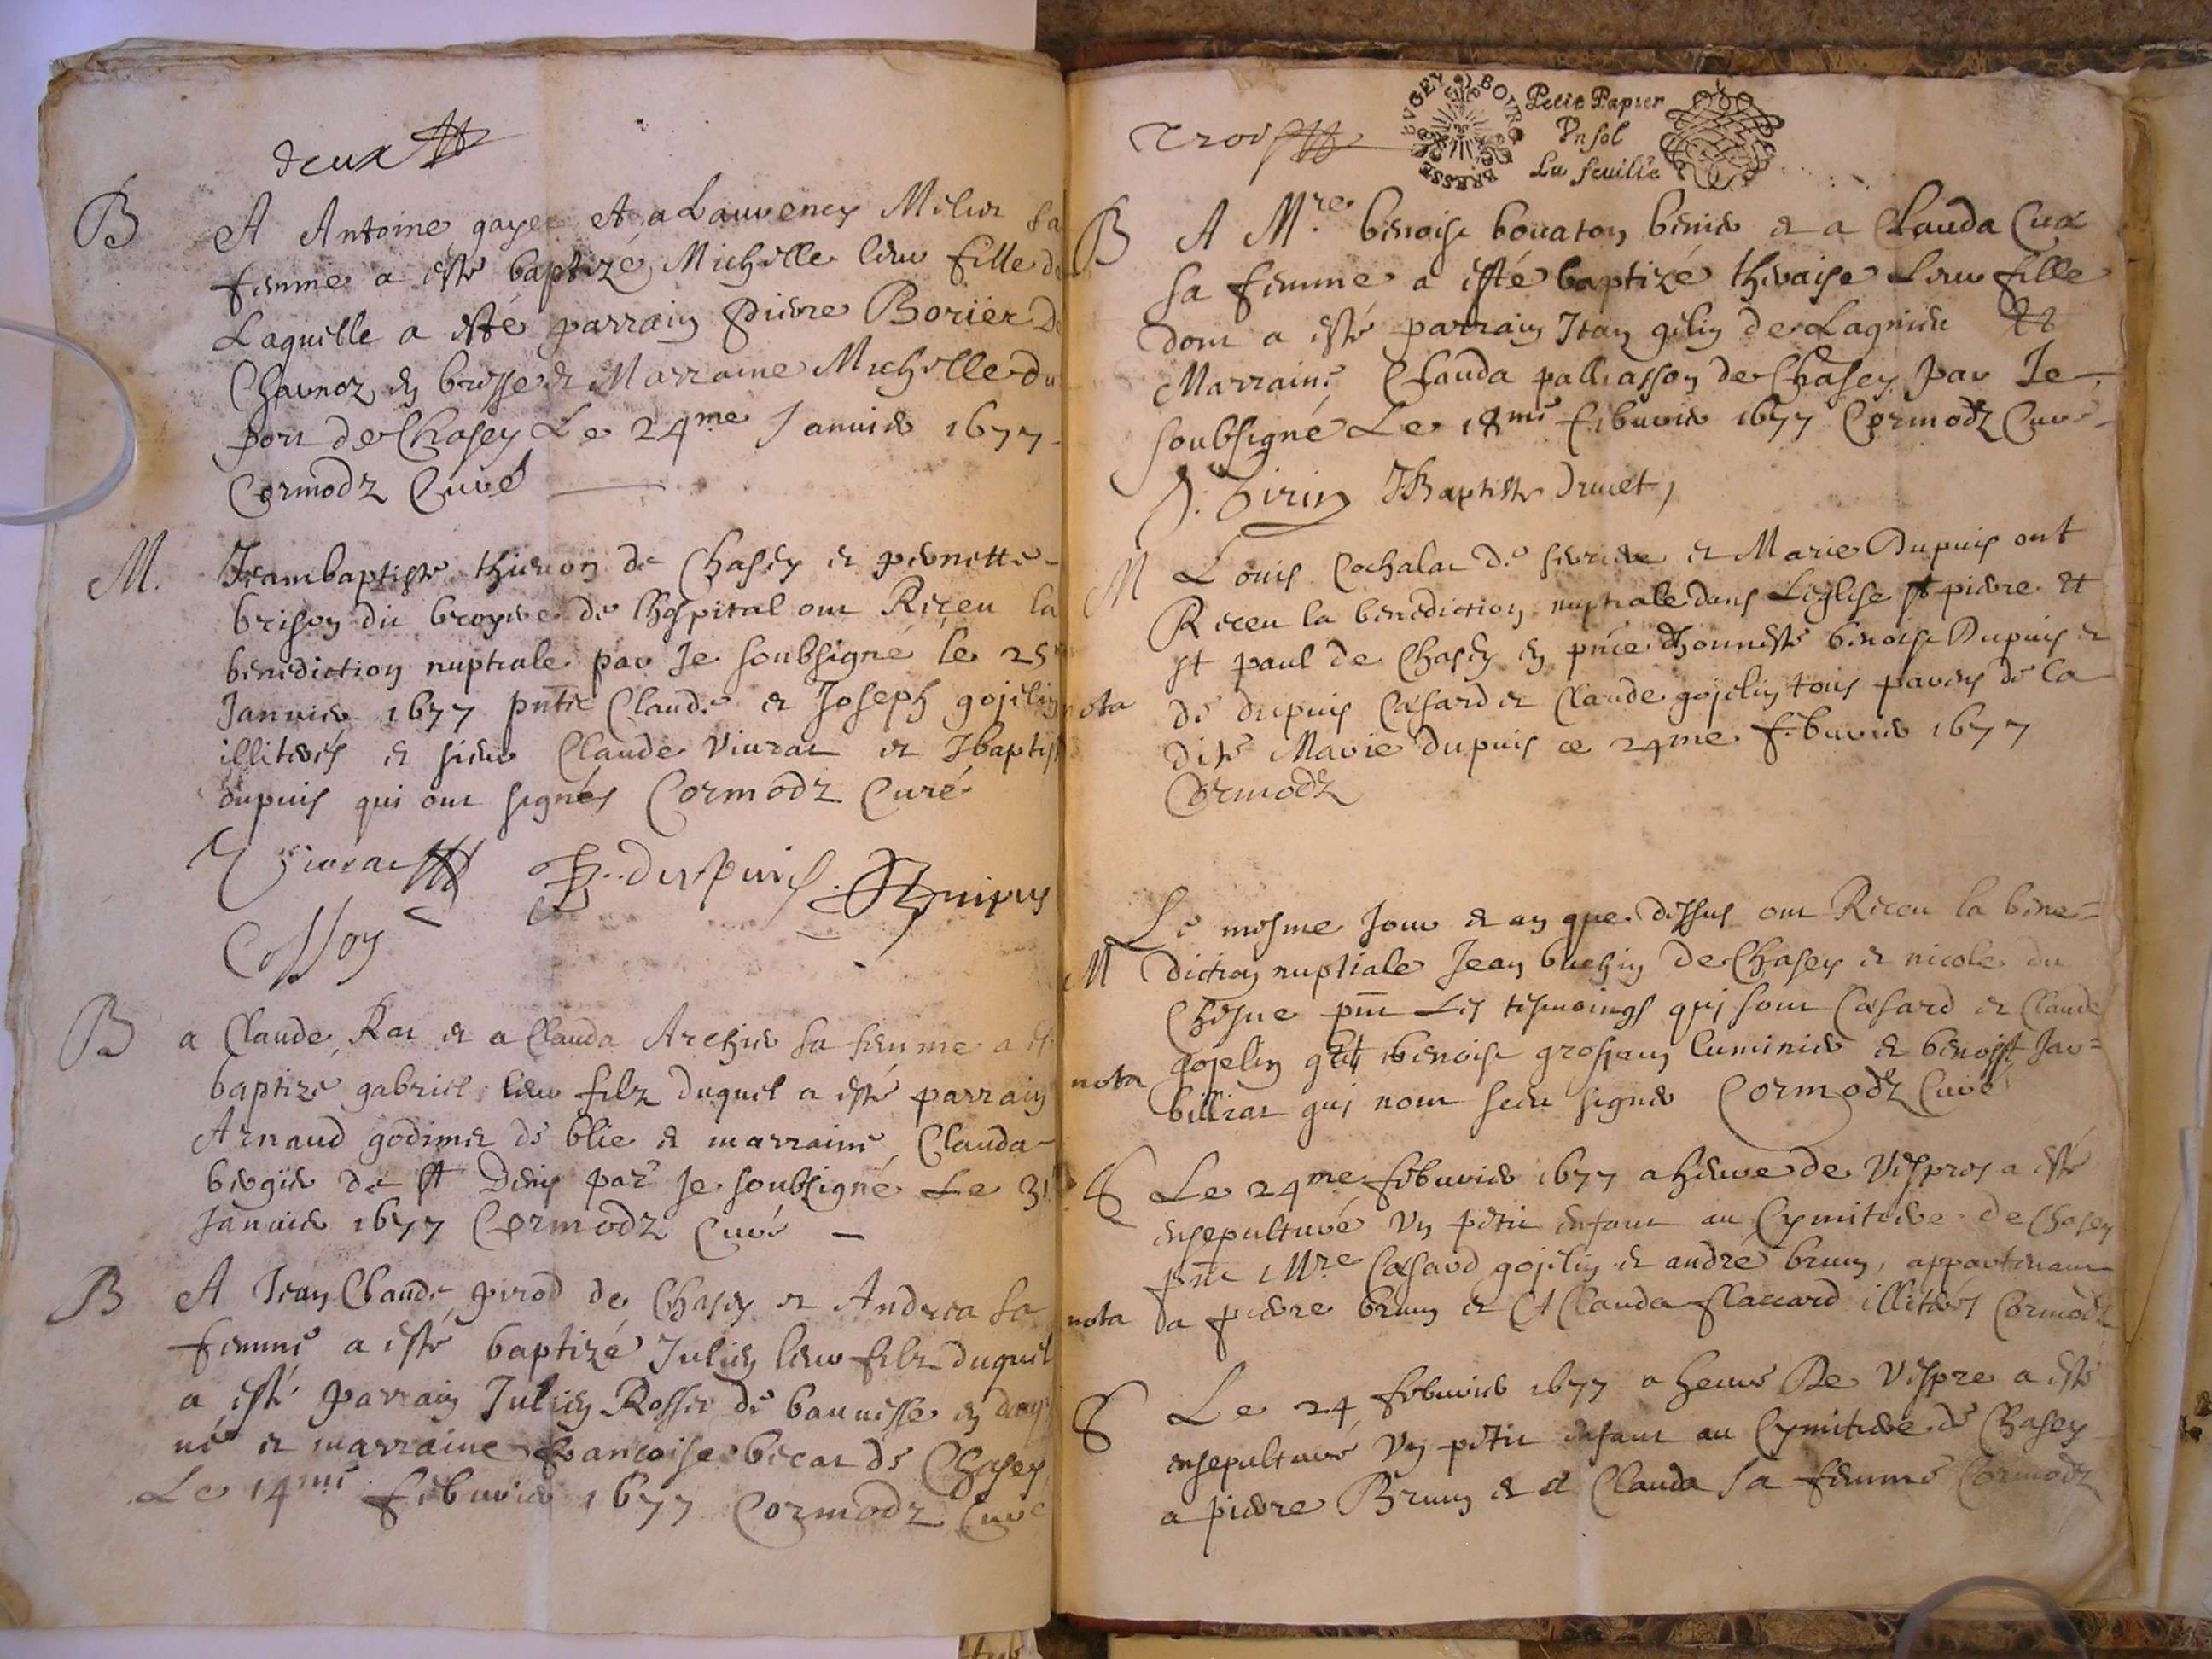 deux
B A Antoine gayet Et a Laurency Milier sa
femme a esté baptizé Michelle leur fille de
Laquelle a esté parrain pierre Borier De
Charnoz en bresse et Marraine Michelle du
port de Chasey Le 24me Janvier 1677
Cormodz Curé
M. Jeambaptiste thienon de Chasey et pernette
brison du de lhospital ont Receu la
benediction nuptiale par Je soubsigné le 25
Janvier 1677 pnte Claude et Joseph gojelin
illiterés et sieur Claude Viurat et Jbaptiste
dupuis qui ont signés Cormodz Curé
Viurat B. dupuis
Cosson
B a Claude Rat et a Clauda Archier sa femme a
baptizé gabriel leur filz duquel a esté parrain
Arnaud godimet de blie et marraine Clauda
bergier de st Denis par Je soubsigné Le 31
Janvier 1677 Cormodz Curé
B A Jean Claude girod de Chasey et Andrea sa
femme a esté baptizé Julien leur filz duquel
a esté parrain Julien Rosset de
né et marraine francoise becat de Chasey
Le 14me febvrier 1677 Cormodz Curé
trois
BVGEY BOVRG BRESSE
Petit Papier
Vn sol
La feuille
B A Mre benoist bovaton benier et a Clauda Cux
sa femme a esté baptizé thevaise Leur fille
dont a esté parrain Jean gelin de Lagnieu Et
Marraine Clauda palliasson de Chasey par Je
soubsigné Le 18me febvrier 1677 Cormodz Curé
JBaptiste Druet
M Louis Cochalat de et Marie Dupuis ont
Receu la benediction nuptiale dans Leglise st pierre et
st paul de Chasey en pnce dhonneste benoist Dupuis et
nota de dupuis Cæsard et Claude gojelin tous parens de la
dite Marie dupuis ce 24me febvrier 1677
Cormodz
Le mesme Jour et an que dessus ont Receu la bene=
M diction nuptiale Jean buchin de Chasey et nicole du
Chesne pnt Les tesmoings qui sont Cæsard et Claude
nota gojelin benoist grosjean luminier et benoist Jar=
billiat qui nont sceu signer Cormodz Curé
S Le 24me febvrier 1677 a heure de Vespres a esté
ensepulturé Vn petit enfant au Cymitiere de Chasey
pnt Mre Cæsard gojelin et andré brun, appartenant
nota a pierre brun et A Clauda flaccard illiterés Cormodz
S Le 24 febvrier 1677 a heure De Vespre a esté
ensepulturé Vn petit enfant au Cymitiere de Chasey
a pierre Brun et a Clauda sa femme Cormodz